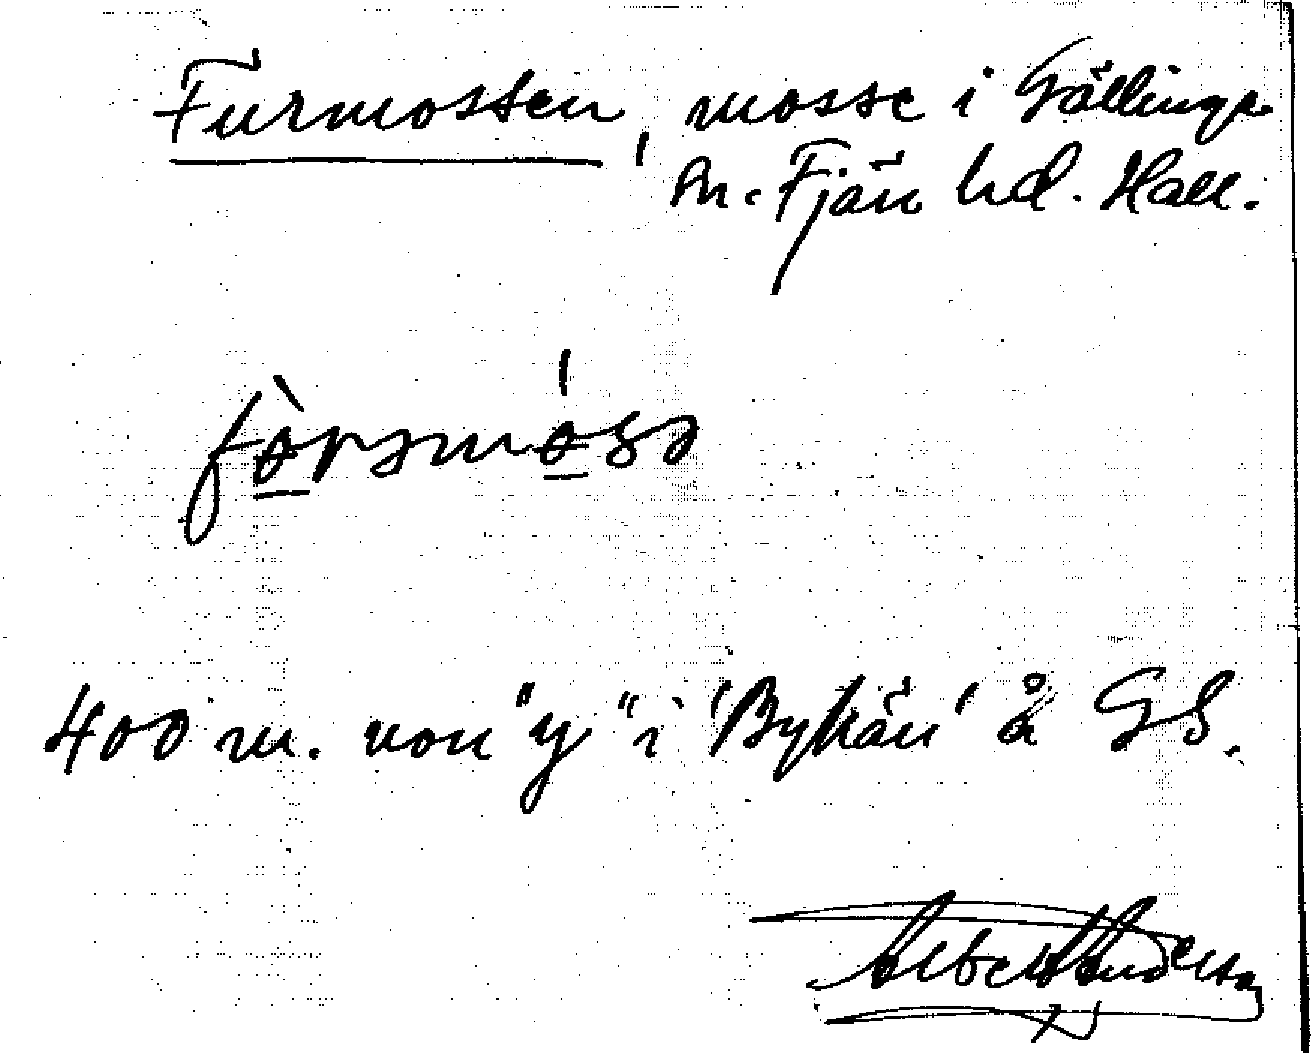 Furmossen, mosse i Gällinge
sn. Fjäre hd. Hall.
fòrsmóss
400 m. von "y" i 'Byhäu' å GS.
Albert Anderson